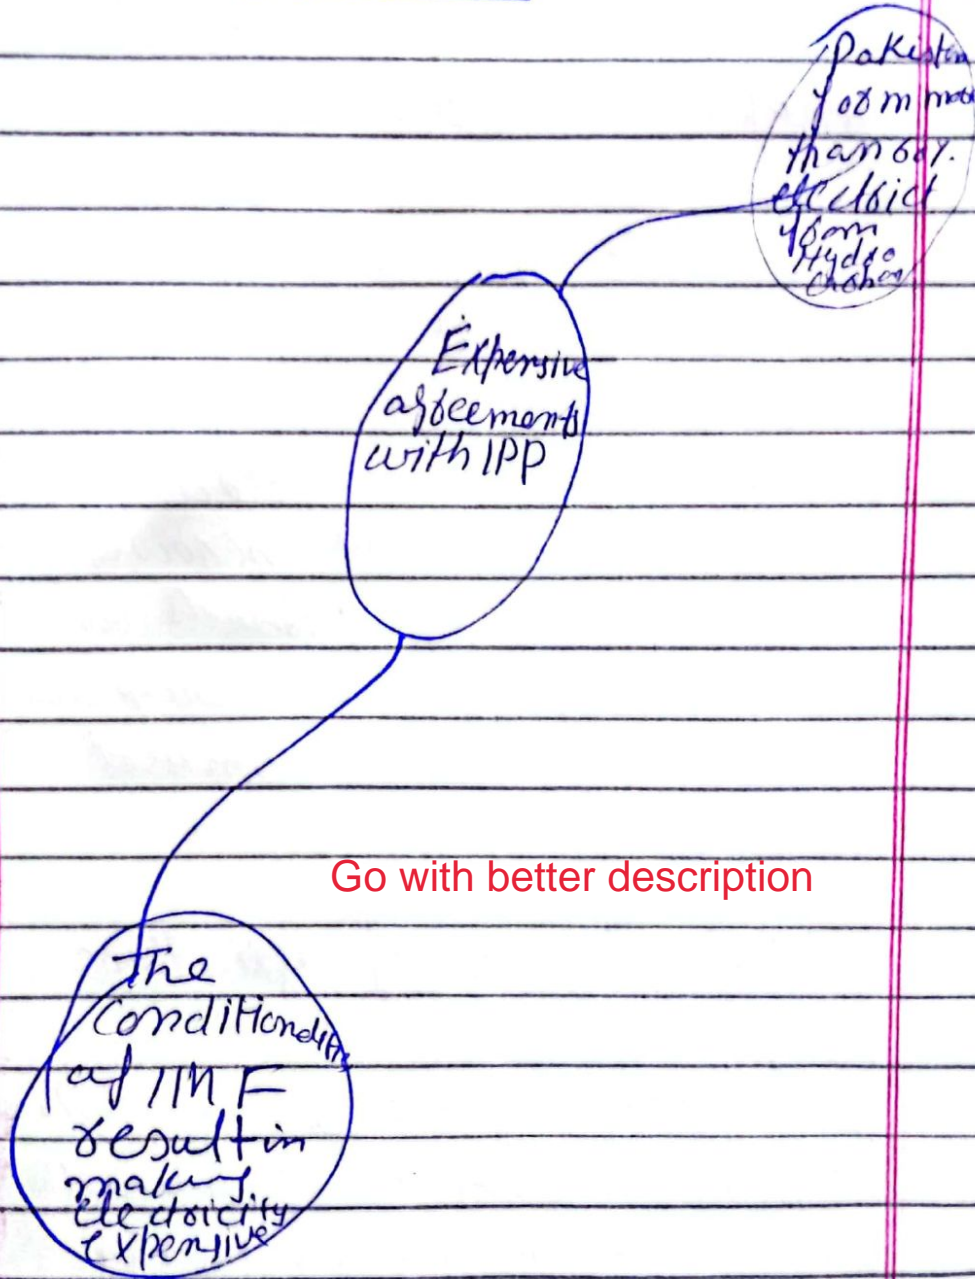 Pakistan
form more
than 60%.
electrict
from
Hydro
Expensive
agreements
with IPP
Go with better description
The
Conditionality
of IMF
result in
making
electricity
expensive